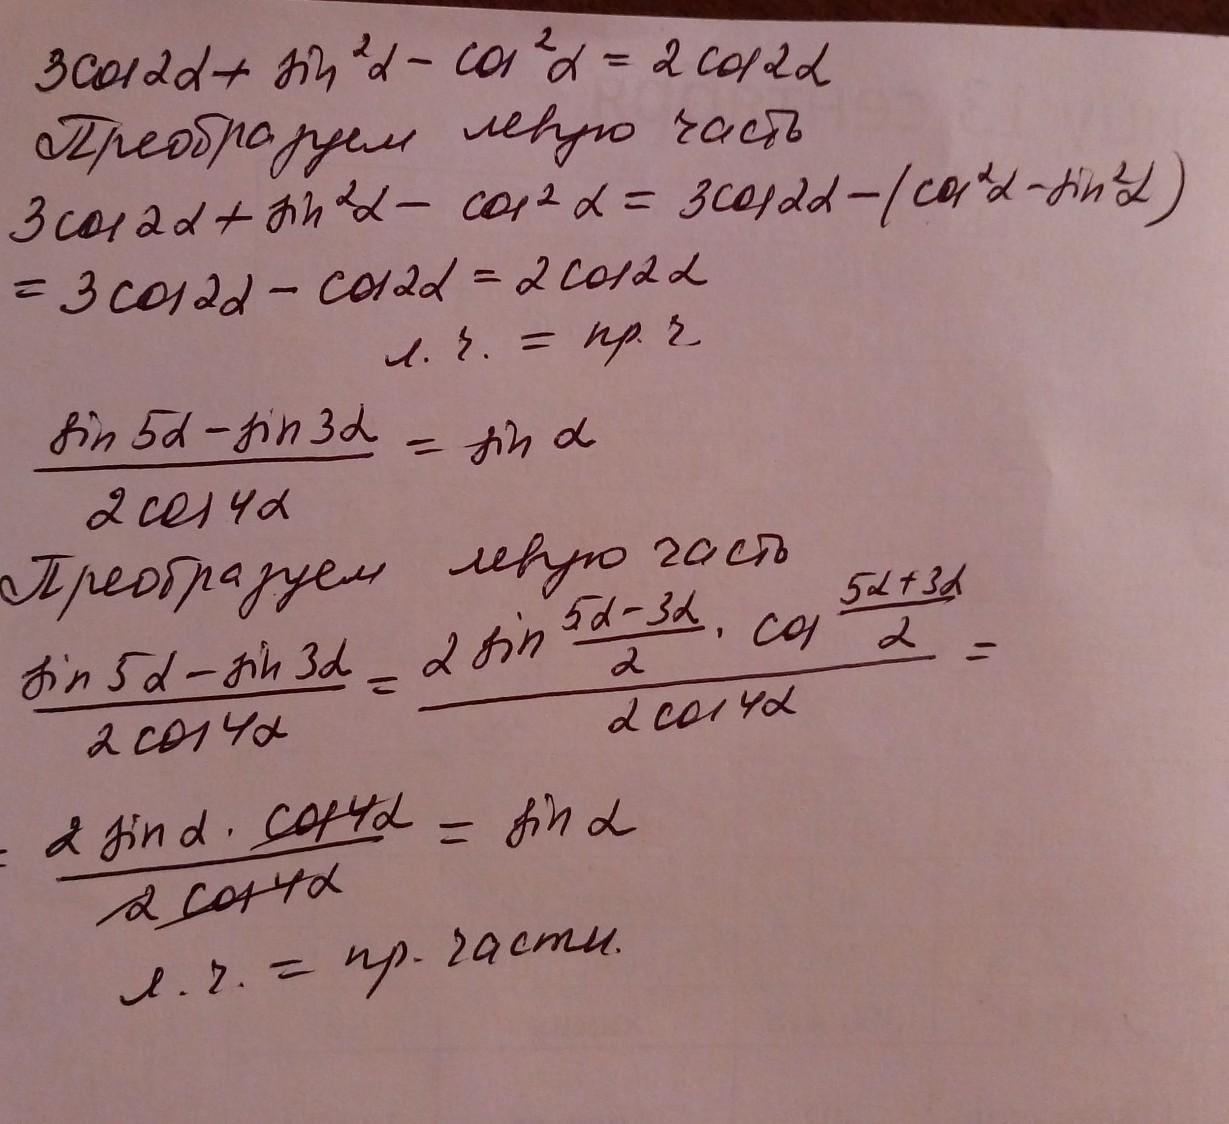 3cos2α + sin²α - cos²α = 2cos2α
Преобразуем левую часть
3cos2α + sin²α - cos²α = 3cos2α - (cos²α - sin²α)
= 3cos2α - cos2α = 2cos2α
л. ч. = пр. ч
(sin 5α - sin 3α) / (2cos4α) = sin α
Преобразуем левую часть
(sin 5α - sin 3α) / (2cos4α) = (2 sin (5α - 3α)/2 · cos (5α + 3α)/2) / (2cos4α) =
= (2 sin α · cos4α) / (2cos4α) = sin α
л. ч. = пр. части.